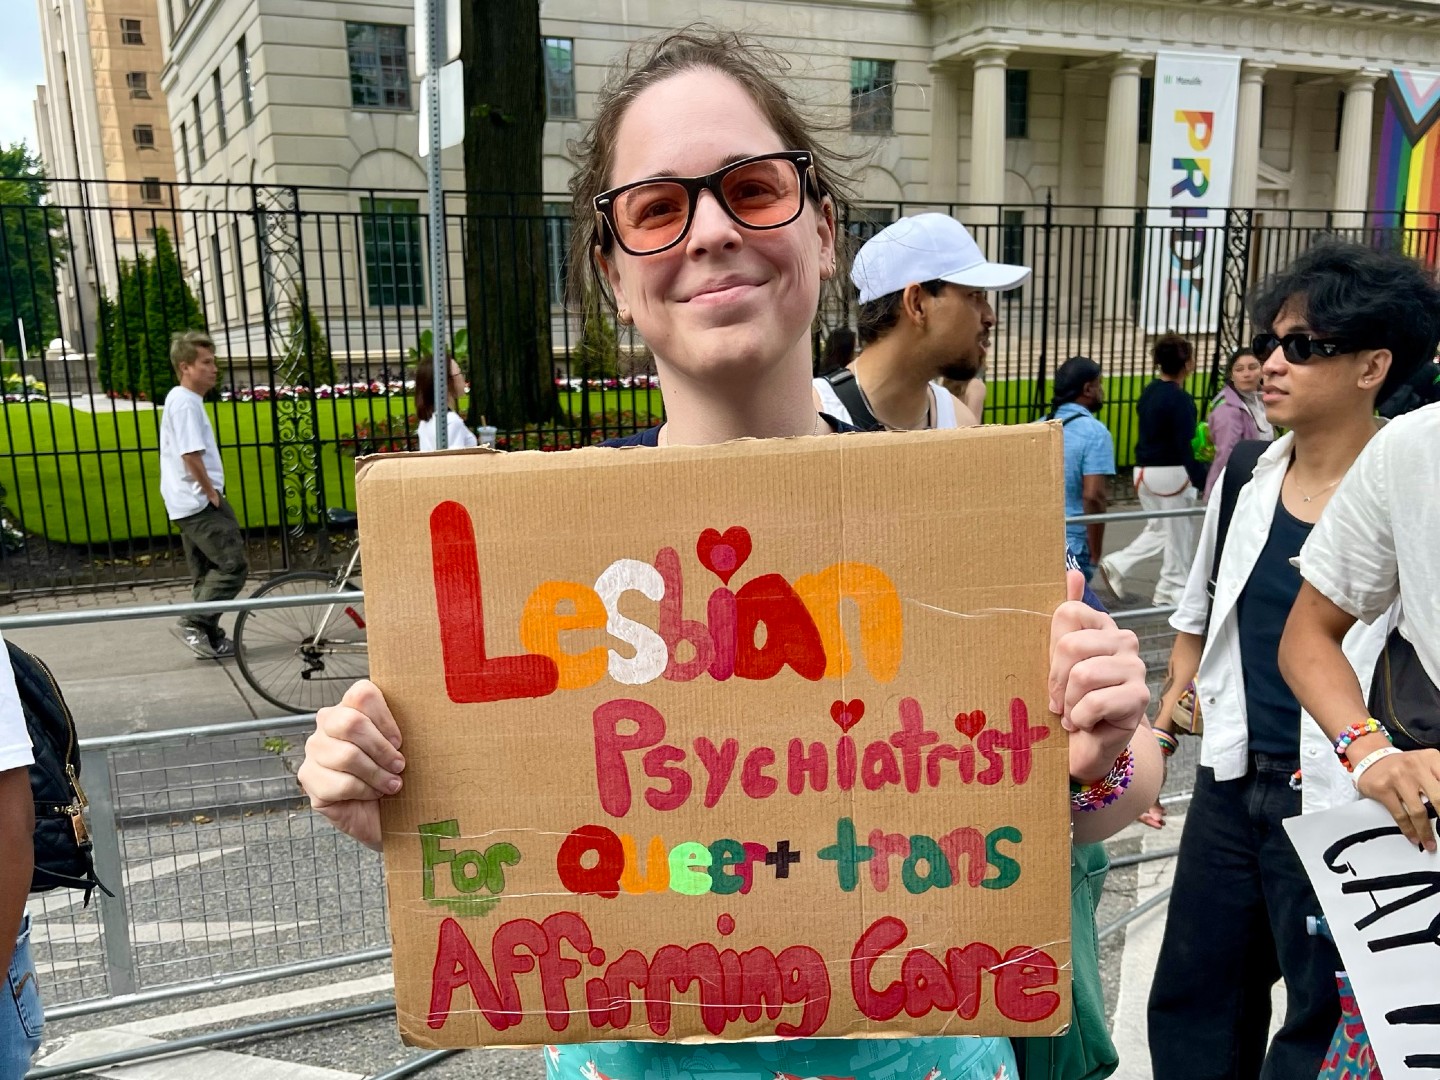 Lesbian
Psychiatrist
For Queer+ trans
Affirming Care
Manulife
PRIDE
GAY